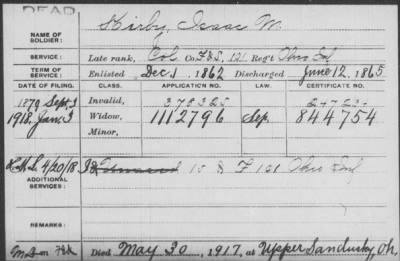 DEAD
NAME OF SOLDIER: Kirby, Isaac M.
SERVICE: Late rank, Col Co. F&S, 121 Reg't Ohio Inf
TERM OF SERVICE: Enlisted Dec 1, 1862 Discharged June 12, 1865
DATE OF FILING. CLASS. APPLICATION NO. LAW. CERTIFICATE NO.
1879 Sept 3 Invalid, 378325
1918. Jan 3 Widow, 1112796 Sep. 844754
Minor,
4/20/18 F 101 Ohio Inf
ADDITIONAL SERVICES:
REMARKS:
Died May 30, 1917, at Upper Sandusky, Oh.